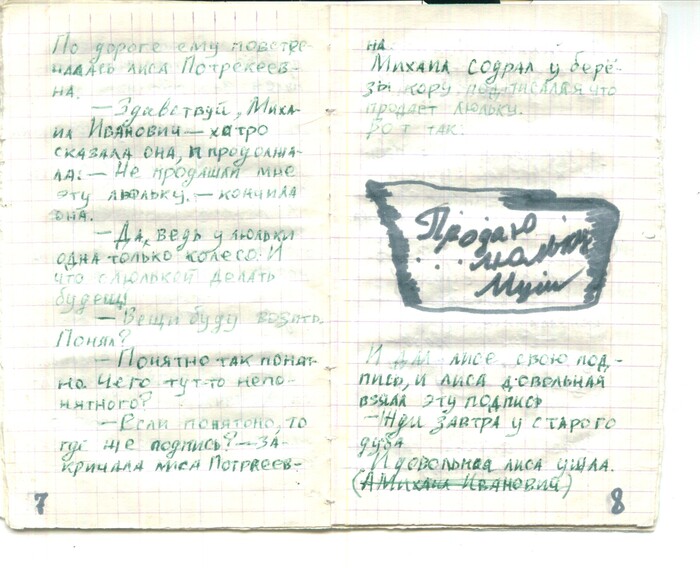 По дороге ему повстре-
чалась лиса Потрекеев-
на.
— Здавствуй, Миха-
ил Иванович — хитро
сказала она, и продолжа-
ла: — Не продашли мне
эту люльку. — кончила
она.
— Да, ведь у люльки
одна только колесо. И
что с люлькой делать
будеш?
— Вещи буду возить.
Понял?
— Понятно так понят-
но. Чего тут-то непо-
нятного?
— Если понятоно, то
где же подпись? — за-
кричала лиса Потрекеев-
7
на.
Михаил содрал у берё-
зы кору, подписался что
продаёт люльку.
Вот так:
Продаю
люльку
И дал лисе свою под-
пись, и лиса довольная
взяла эту подпись
— Жди завтра у старого
дуба
И довольная лиса ушла.
(А Михаил Иванович)
8